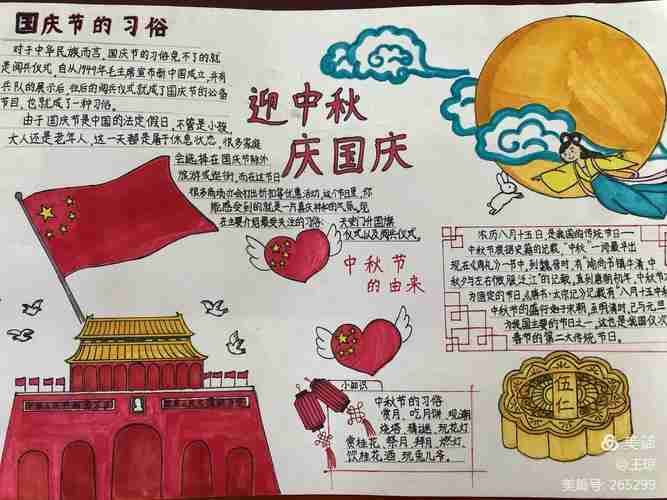 国庆节的习俗
对于中华民族而言,国庆节的习俗免不了的就
是阅兵仪式,自从1949年毛主席宣布新中国成立,并有
兵队的展示后,往后的阅兵仪式就成了国庆节的必备
节目,也就成了一种习俗。
由于国庆节是中国的法定假日,不管是小孩,
大人还是老年人,这一天都是属于休息状态,很多家庭
会选择在国庆节除外
旅游或逛街,而在这节日
很多商场亦会打出折扣等优惠活动,这个节日里,你
能感受到的就是一片喜庆祥和的气氛,现
在主要介绍最受关注的习俗:天安门升国旗
仪式以及阅兵仪式。
迎中秋
庆国庆
中秋节
的由来
农历八月十五日是我国的传统节日—
中秋节根据史籍的记载,“中秋”一词最早出
现在《周礼》一书中,到魏晋时,有“谕尚书镇牛渚,中
秋夕与左右微服泛江”的记载,直到唐朝初年,中秋
为固定的节日,《唐书·太宗记》记载有“八月十五中秋
中秋节的盛行始于宋朝,至明清时,已与元旦
为我国主要的节日之一,这也是我国仅次
春节的第二大传统节日。
小知识
中秋节的习俗
赏月、吃月饼、观潮
烧塔、猜谜、玩花灯
赏桂花、祭月、拜月、燃灯、
饮桂花酒、玩兔儿爷。
伍
仁
美篇
@王琼
美篇号:265299